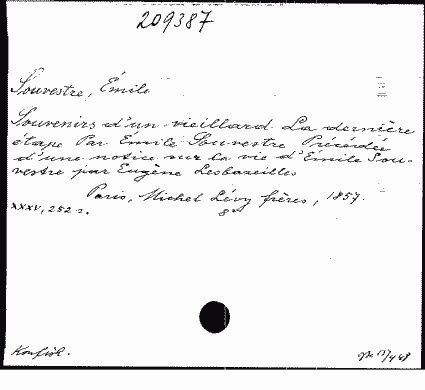 209387
Souvestre, Émile
Souvenirs d'un vieillard. La dernière
étape Par Émile Souvestre Précédée
d'une notice sur la vie d'Émile Sou-
vestre par Eugène Lesbazeilles
Paris, Michel Lévy frères, 1857.
8°
XXXV, 252 s.
Konfisk.